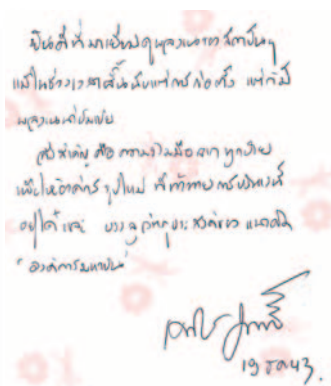 ยินดีที่มาเยี่ยมดูผลงานของสถาบันฯ
แม้ในช่วงเวลาสั้นนับแต่การก่อตั้ง แต่ก็มี
ผลงานน่าชื่นชม
สิ่งสำคัญ คือ ความร่วมมือจาก ทุกฝ่าย
เพื่อให้องค์กร รูปใหม่ ที่ท้าทายการบริหารนี้
อยู่ได้ และ บรรลุวัตถุประสงค์ของ แนวคิด
"องค์การมหาชน"
19 ธค 43.